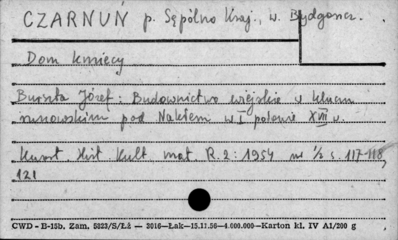 CZARNUŃ p. Sępólno Kraj., w. Bydgoszcz.
Dom kmiecy
Burszta Józef: Budownictwo wiejskie w kluczu
runowskim pod Nakłem w I połowie XVII w.
Kwart. Hist. Kult. mat. R. 2: 1954 nr 1/2 s. 117-118,
121
CWD - B-15b. Zam. 5823/S/Łż — 3016—Łak—15.11.56—4.000.000—Karton kl. IV A1/200 g